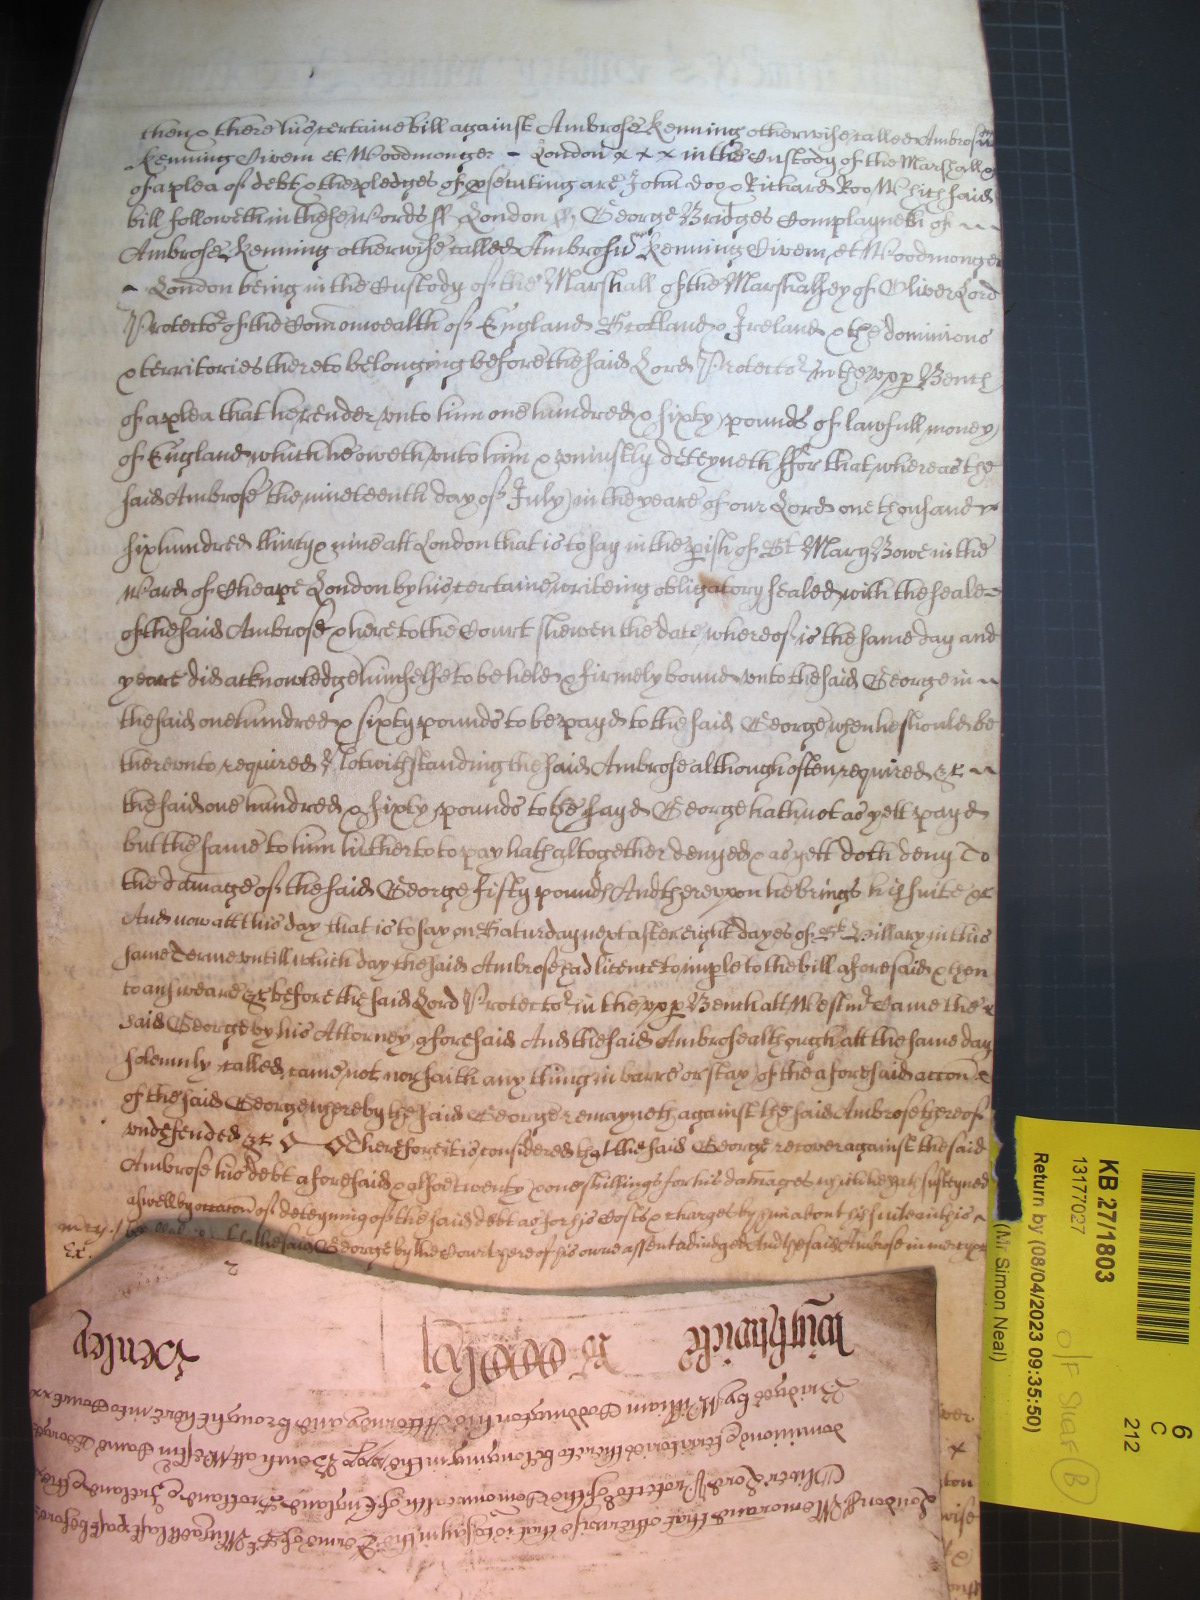 then & there his certaine bill against Ambrose Kenning otherwise called Ambrosiu
Kenning Civem et Woodmonger - London x x x in the Custody of the Marshall &c
of a plea of debt & the pledges of prsenting are John Doo & Richard Roo Which said
bill followeth in these words ss London ss George Bridges Complayneth of
Ambrose Kenning otherwise called Ambrosiu Kenning Civem, et Woodmonger
- London being in the Custody of the Marshall of the Marshalsey of Oliver Lord
Protector of the Comonwealth of England Scotland & Ireland & the dominions
& territories thereto belonging before the said Lord Protector in the upp Bench
of a plea that he render unto him one hundred & sixty pounds of lawfull money
of England which he oweth unto him & uniustly deteyneth ffor that whereas the
said Ambrose the nineteenth day of July in the yeare of our Lord one thousand
six hundred thirty & nine att London that is to say in the pish of St Mary Bowe in the
Ward of Cheape London by his certaine writeing obligatory sealed with the seale
of the said Ambrose & here to the Court shewen the date whereof is the same day and
yeare did acknowledge himselfe to be held & firmely bound unto the said George in
the said one hundred & sixty pounds to be payd to the said George when he should be
thereunto required Notwithstanding the said Ambrose although often required &c
the said one hundred & sixty pounds to the sayd George hath not as yett payd
but the same to him hitherto to pay hath altogether denyed & as yett doth deny To
the damage of the said George fifty pounds And thereupon he brings his suite &c
And now att this day that is to say on Saturday next after eight dayes of St Hillary in this
same Terme untill which day the said Ambrose had licence to imple to the bill aforesaid & then
to answeare &c before the said Lord Protector in the upp Bench att Westmr Came the
said George by his Attorney aforesaid And the said Ambrose although att the same day
solemnly called came not nor saith any thing in barre or stay of the aforesaid accon
of the said George whereby the said George remayneth against the said Ambrose thereof
undefended &c Therefore it is considered that the said George recover against the said
Ambrose his debt aforesaid & alsoe twenty & one shillings for his damages which he hath susteyned
aswell by occacon of deteyning of the said debt as for his Costs & charges by him about his suite in this
to the said George by the Court here of his owne assent adiudged And the said Ambrose in mercy &c
2
Southwicke
Henley
London ss Memorand that otherwise that is to say in the Terme of St Michaell last past before
Oliver Lord Protector of the Comonwealth of England Scotland & Ireland & the
dominions & territories thereto belonging in the upp Bench att Westm Came George
Bridges by William Coddington his Attorney and brought here into Court
KB 27/1803
13177027
Return by (08/04/2023 09:35:50)
(Mr Simon Neal)
6
C
212